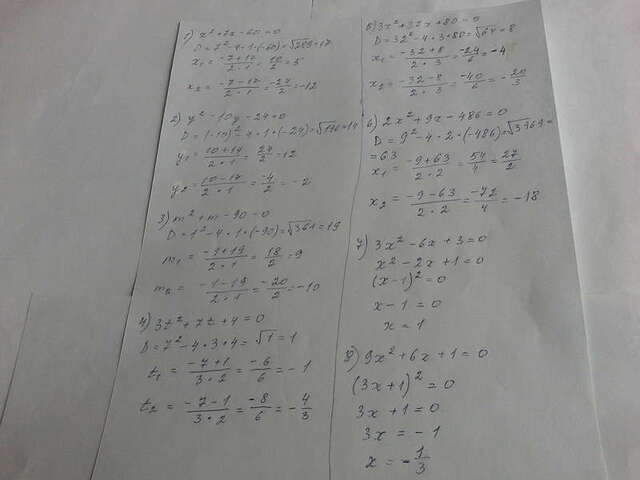 1) x² + 7x - 60 = 0
D = 7² - 4 · 1 · (-60) = √289 = 17
x₁ = (-7+17)/(2·1) = 10/2 = 5
x₂ = (-7-17)/(2·1) = -24/2 = -12
2) y² - 10y - 24 = 0
D = (-10)² - 4 · 1 · (-24) = √196 = 14
y₁ = (10+14)/(2·1) = 24/2 = 12
y₂ = (10-14)/(2·1) = -4/2 = -2
3) m² + m - 90 = 0
D = 1² - 4 · 1 · (-90) = √361 = 19
m₁ = (-1+19)/(2·1) = 18/2 = 9
m₂ = (-1-19)/(2·1) = -20/2 = -10
4) 3t² + 7t + 4 = 0
D = 7² - 4 · 3 · 4 = √1 = 1
t₁ = (-7+1)/(3·2) = -6/6 = -1
t₂ = (-7-1)/(3·2) = -8/6 = -4/3
5) 3x² + 32x + 80 = 0
D = 32² - 4 · 3 · 80 = √64 = 8
x₁ = (-32+8)/(2·3) = -24/6 = -4
x₂ = (-32-8)/(2·3) = -40/6 = -20/3
6) 2x² + 9x - 486 = 0
D = 9² - 4 · 2 · (-486) = √3969 =
= 63
x₁ = (-9+63)/(2·2) = 54/4 = 27/2
x₂ = (-9-63)/(2·2) = -72/4 = -18
7) 3x² - 6x + 3 = 0
x² - 2x + 1 = 0
(x-1)² = 0
x - 1 = 0
x = 1
8) 9x² + 6x + 1 = 0
(3x+1)² = 0
3x + 1 = 0
3x = -1
x = -1/3